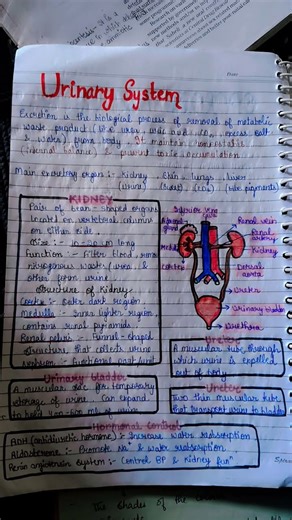 Urinary System
Excretion is the biological process of removal of metabolic
waste product (like urea, uric acid, CO2, excess salt
& water) from body. It maintain homeostatic
(internal balance) & prevent toxic accumulation
Main excretory organ :- Kidney, Skin, lungs, liver
(urine) (sweat) (CO2) (bile pigments)
KIDNEY
Pair of bean-shaped organs
located on vertebral columns
on either side.
Size :- 10-20 cm long
Function :- filter blood, remove
nitrogenous waste (urea) &
other form urine
Structure of Kidney
Cortex :- Outer dark region.
Medulla :- Inner lighter region
contains renal pyramids.
Renal pelvis :- Funnel-shaped
structure that collects urine
Nephron :- functional unit
Inferior vena
cava
Adrenal
gland
Medulla
Cortex
Renal vein
Renal
artery
Kidney
Dorsal
aorta
Ureter
Urinary bladder
Urethra
A muscular tube through
which urine is expelled
out of body.
Urinary bladder
A muscular sac for temporary
storage of urine. Can expand
to hold 400-600 ml of urine.
Ureter
Two thin muscular tubes
that transport urine to bladder
Hormonal Control
ADH (antidiuretic hormone) :- Increase water reabsorption
Aldosterone :- Promote Na+ & water reabsorption
Renin angiotensin system :- Control BP & kidney fun"